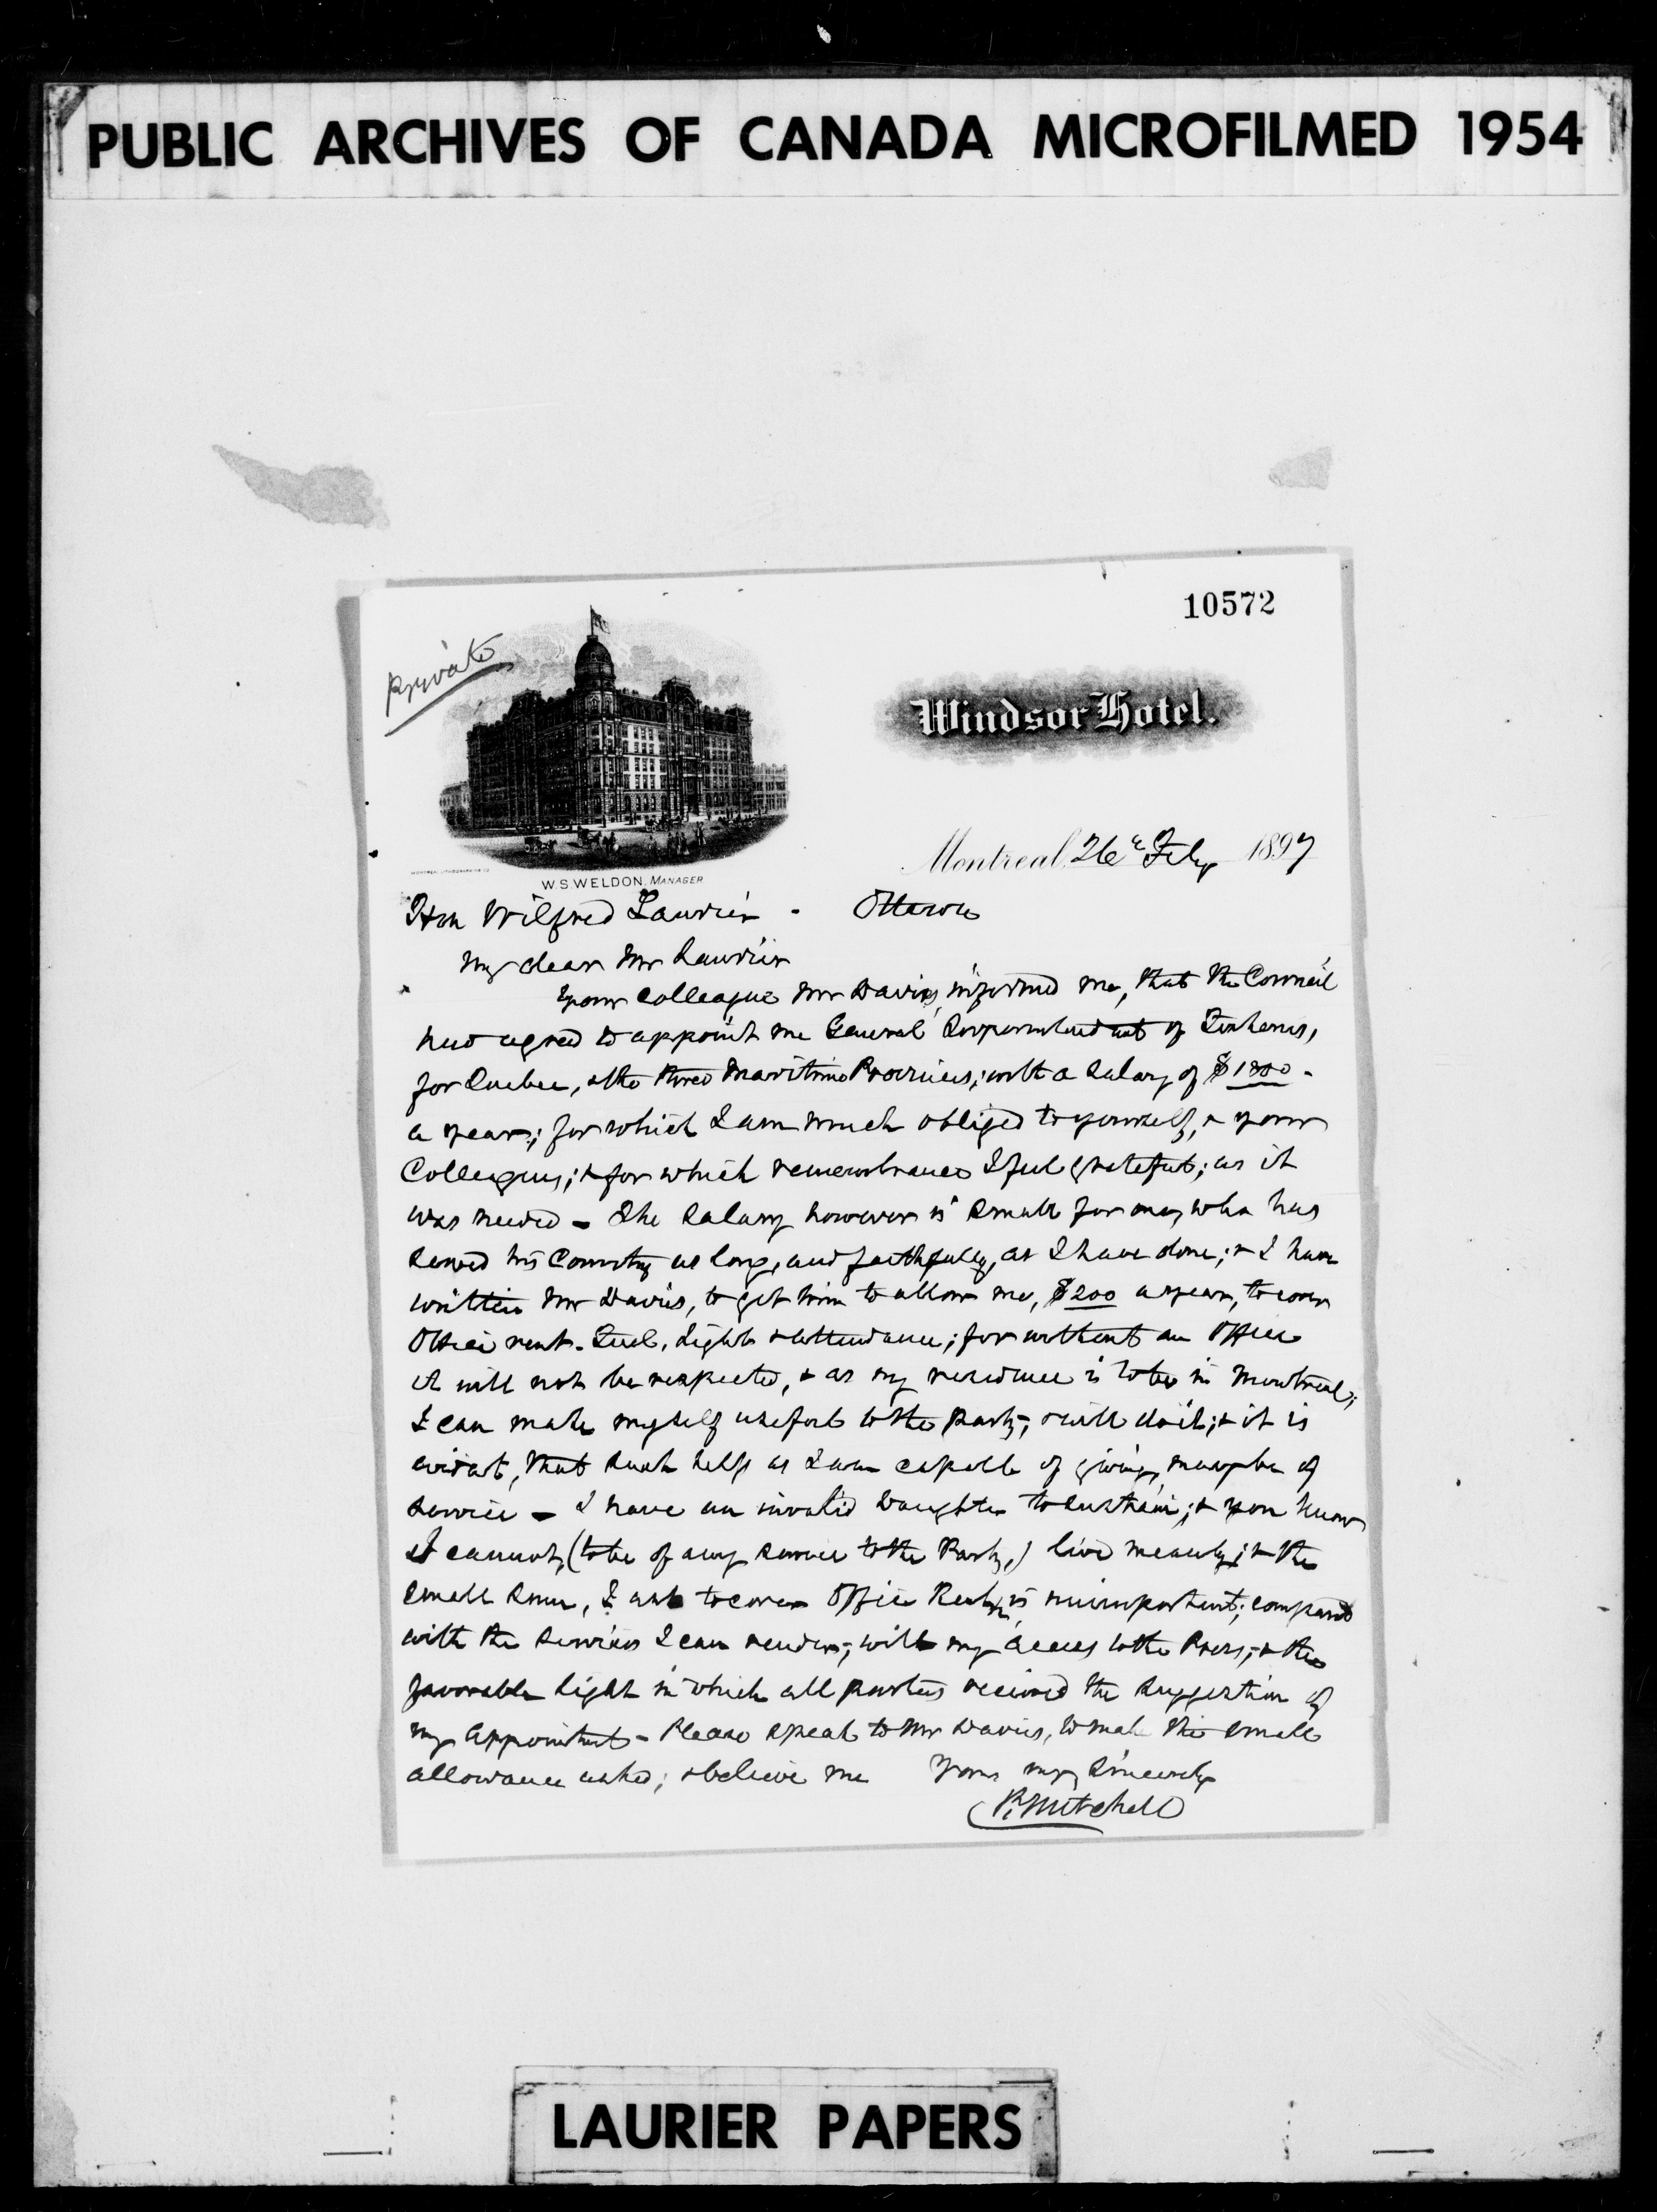 PUBLIC ARCHIVES OF CANADA MICROFILMED 1954
10572
Private
Windsor Hotel.
Montreal 26th Feby 1897
W.S. WELDON, MANAGER
Hon Wilfred Laurier - Ottawa
My dear Mr Laurier
Your Colleague Mr Davies, informed me, that the Council
had agreed to appoint me General Superintendent of Fisheries,
for Quebec, & the three Maritime Provinces; with a Salary of $1800 -
a year; for which I am much obliged to yourself, & your
Colleagues; & for which remembrance I feel grateful; as it
was needed - The Salary however is small for one, who has
served his Country as long, and faithfully, as I have done; & I have
written Mr Davies, to get him to allow me, $200 a year, to cover
Office rent. Fuel, Light & attendance; for without an Office
it will not be respected, & as my residence is to be in Montreal;
I can make myself useful to the party, & will do it; & it is
evident, that such help as I am capable of giving, may be of
service - I have an invalid Daughter to sustain; & you know
I cannot, (to be of any service to the Party,) live meanly; & the
small sum, I ask to cover Office Rent, is unimportant; compared
with the services I can render; with my access to the Press; & the
favorable light in which all parties received the suggestion of
my appointment - Please speak to Mr Davies, to make the small
allowance asked; & believe me Yours very Sincerely
P. Mitchell
LAURIER PAPERS